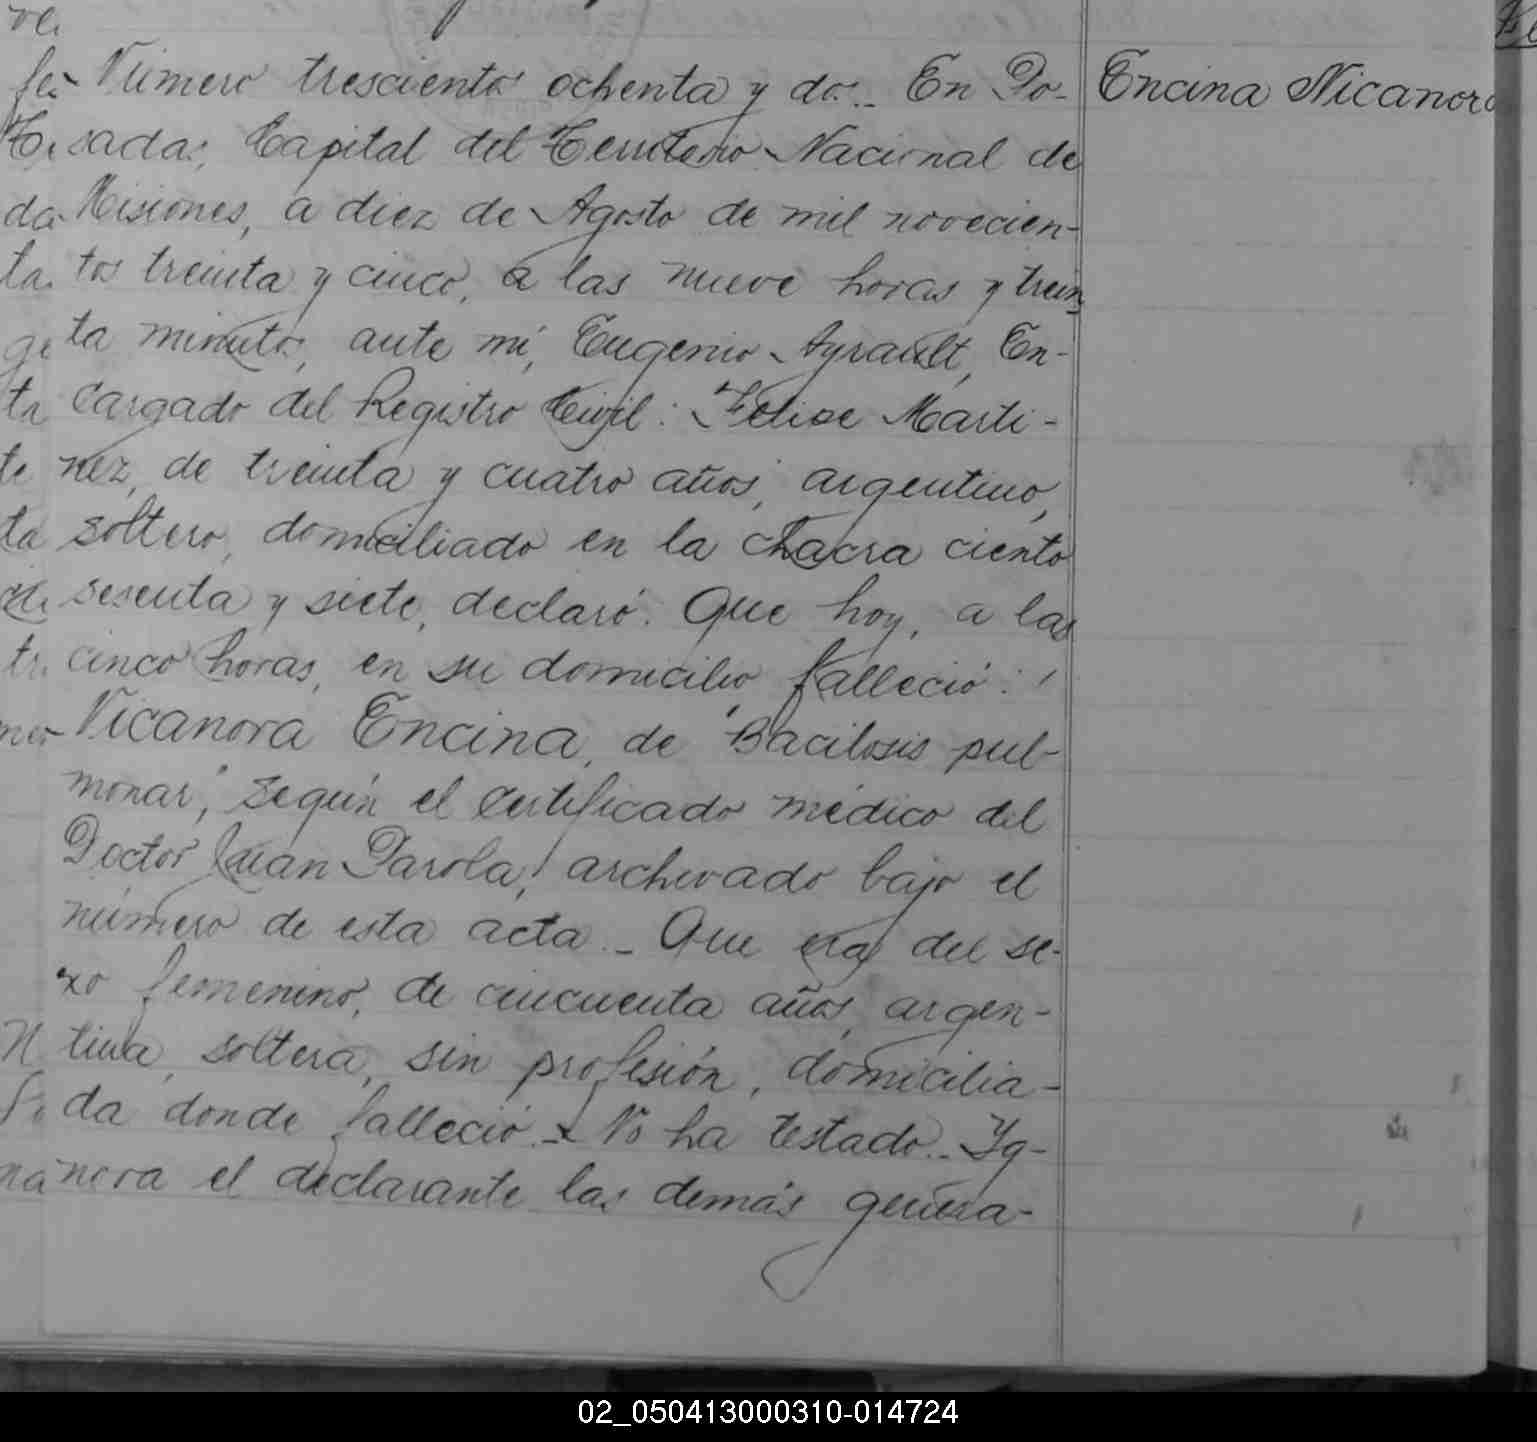 Número trescientos ochenta y dos.- En Po-
sadas, Capital del Territorio Nacional de
Misiones, a diez de Agosto de mil novecien-
tos treinta y cinco, a las nueve horas y trein
ta minutos, ante mí, Eugenio Ayrault, En-
cargado del Registro Civil: Felipe Marti-
nez, de treinta y cuatro años, argentino,
soltero, domiciliado en la chacra ciento
sesenta y siete, declaró: Que hoy, a las
cinco horas, en su domicilio, falleció:
Nicanora Encina, de "Bacilosis pul-
monar", según el certificado médico del
Doctor Juan Parola, archivado bajo el
número de esta acta.- Que era del se-
xo femenino, de cincuenta años, argen-
tina, soltera, sin profesión, domicilia-
da donde falleció.- No ha testado.- Ig-
nora el declarante las demás genera-
Encina Nicanora
02_050413000310-014724